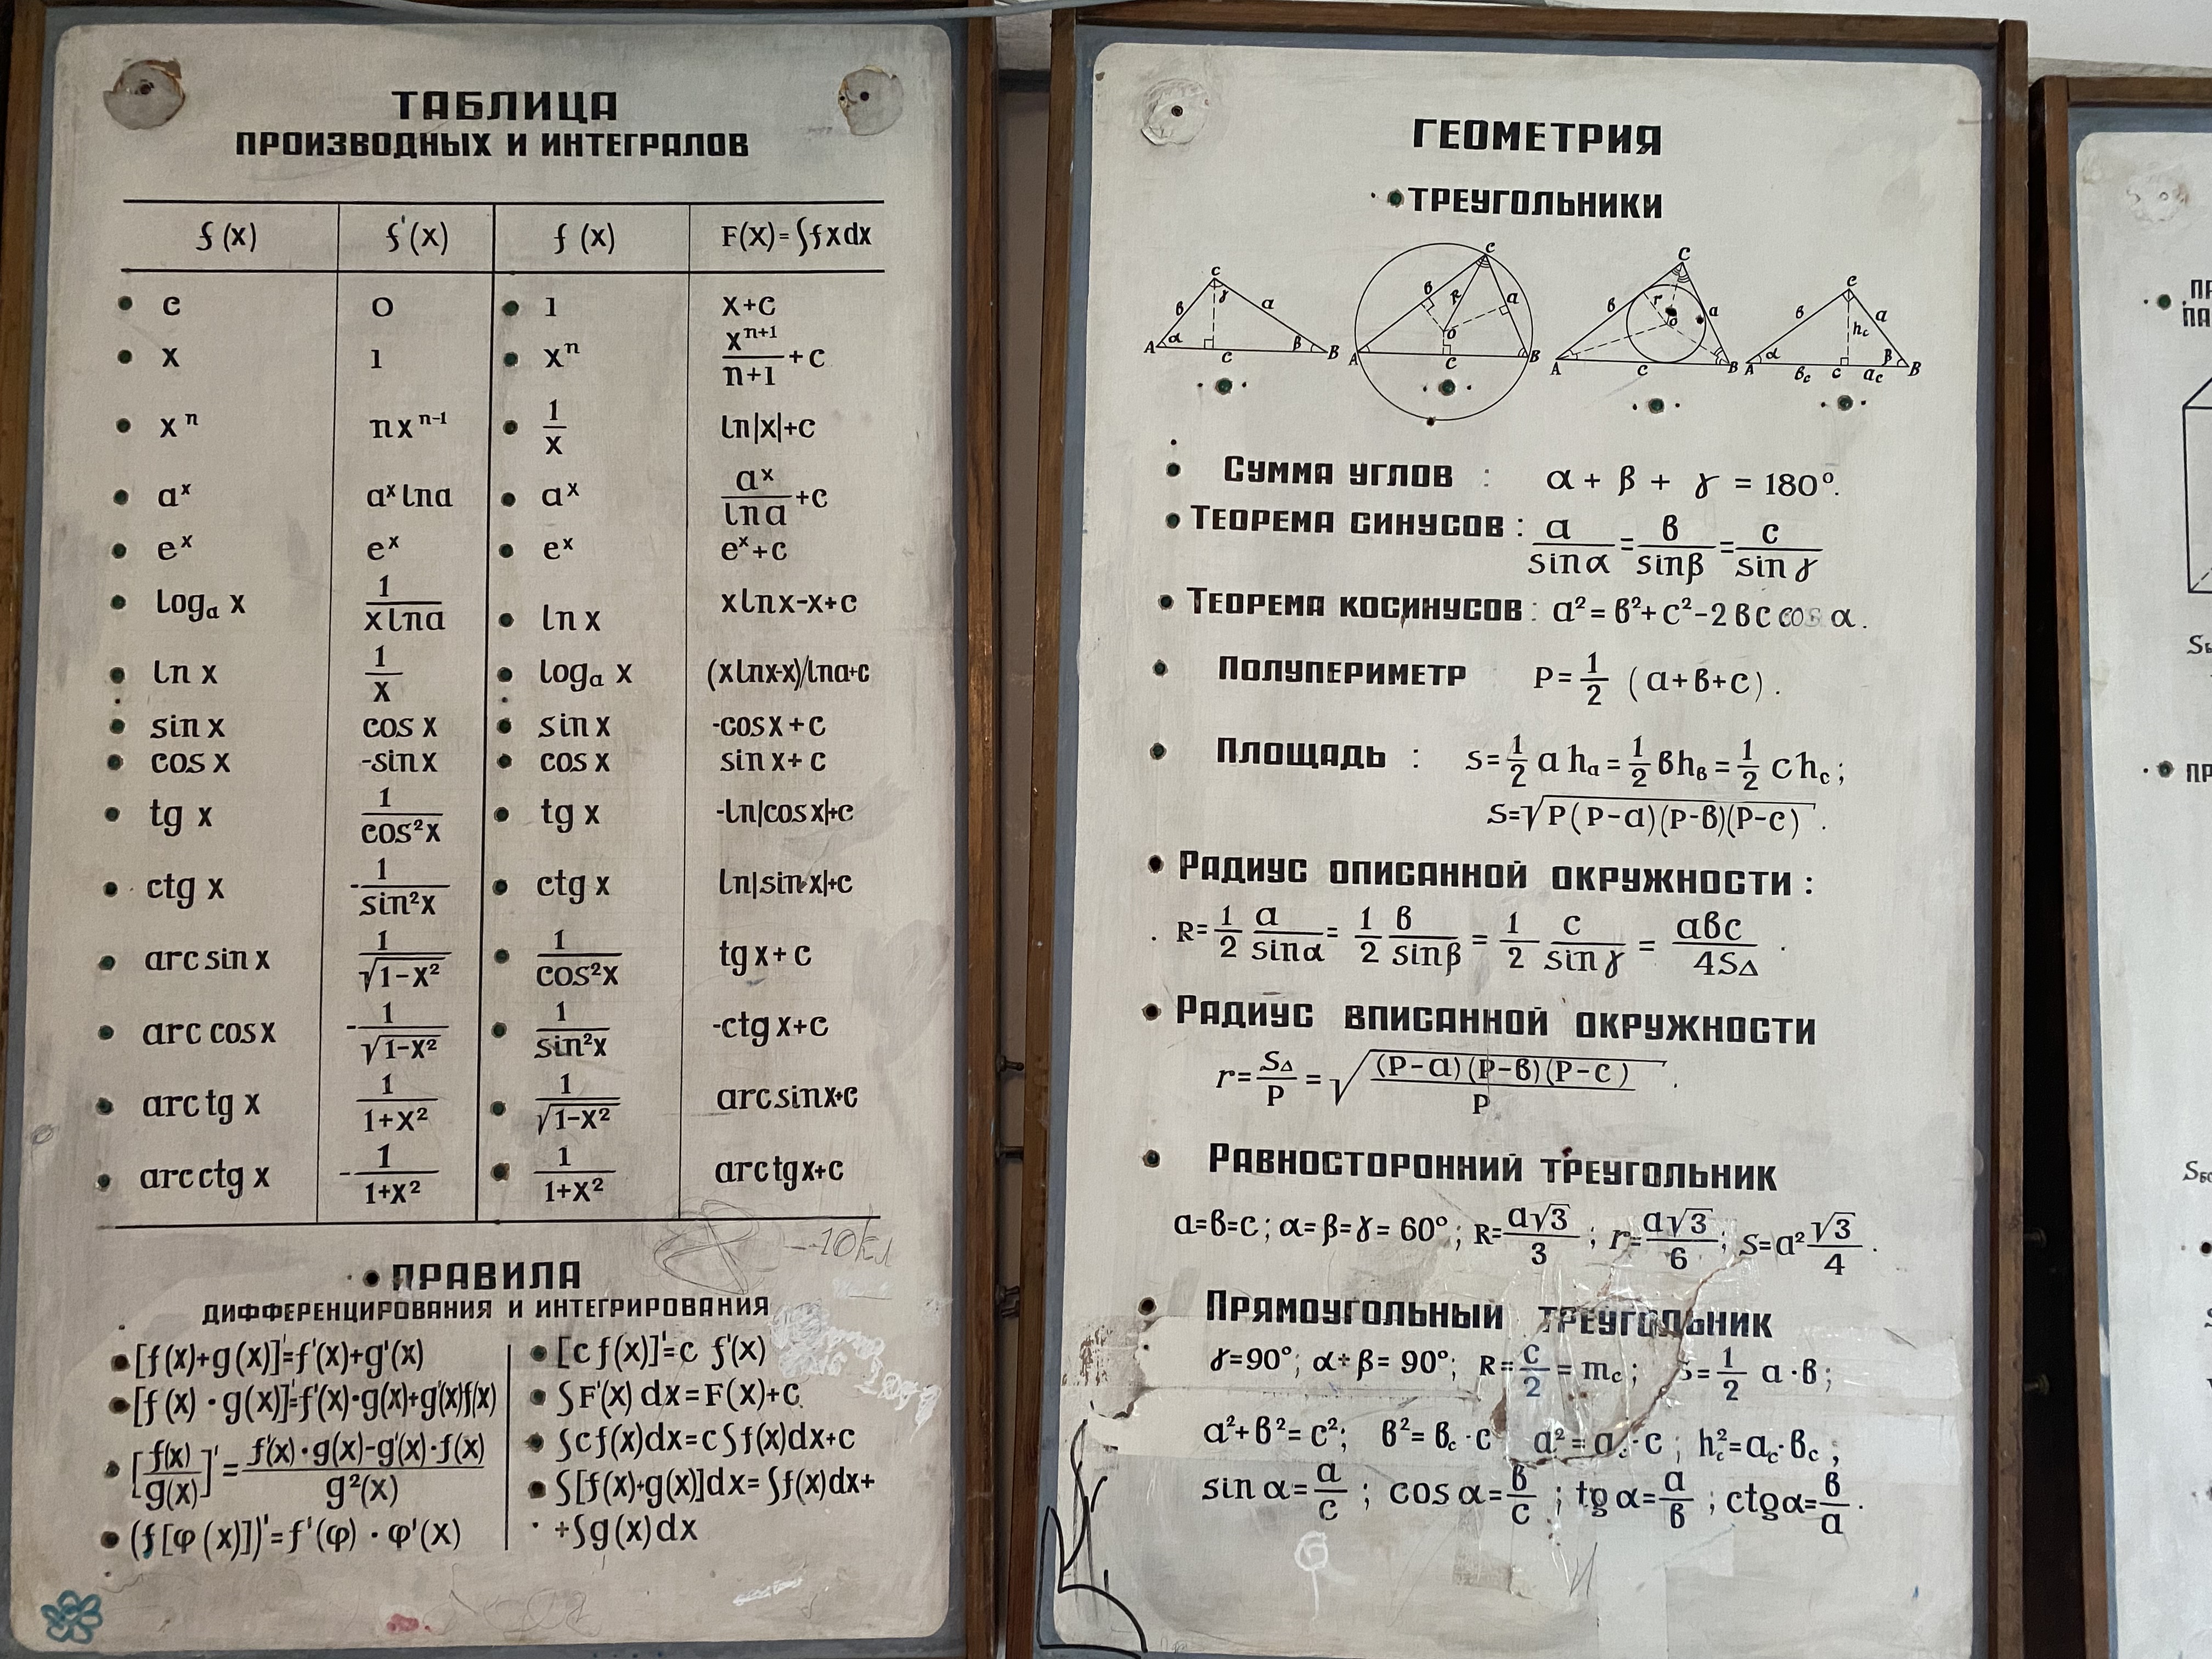 ТАБЛИЦА
ПРОИЗВОДНЫХ И ИНТЕГРАЛОВ
f (x) f'(x) f (x) F(x)=∫fxdx
c 0 1 x+c
x 1 xⁿ xⁿ⁺¹/n+1 +c
xⁿ nxⁿ⁻¹ 1/x ln|x|+c
aˣ aˣ lna aˣ aˣ/lna +c
eˣ eˣ eˣ eˣ+c
logₐ x 1/xlna ln x xlnx-x+c
ln x 1/x logₐ x (xlnx-x)/lna+c
sin x cos x sin x -cosx+c
cos x -sin x cos x sin x+c
tg x 1/cos²x tg x -ln|cos x|+c
ctg x -1/sin²x ctg x ln|sin x|+c
arc sin x 1/√1-x² 1/cos²x tg x+c
arc cos x -1/√1-x² 1/sin²x -ctg x+c
arc tg x 1/1+x² 1/√1-x² arc sinx+c
arc ctg x -1/1+x² 1/1+x² arc tgx+c
10кл
ПРАВИЛА
ДИФФЕРЕНЦИРОВАНИЯ И ИНТЕГРИРОВАНИЯ
[f(x)+g(x)]'=f'(x)+g'(x)
[f(x)·g(x)]'=f'(x)·g(x)+g'(x)f(x)
[f(x)/g(x)]'=f'(x)·g(x)-g'(x)·f(x)/g²(x)
(f[φ(x)])'=f'(φ)·φ'(x)
[c f(x)]'=c f'(x)
∫F'(x) dx=F(x)+c
∫cf(x)dx=c∫f(x)dx+c
∫[f(x)+g(x)]dx=∫f(x)dx+
+∫g(x)dx
ГЕОМЕТРИЯ
ТРЕУГОЛЬНИКИ
A B c в a c α β γ
A B c в a c R o
A B c в a c r o
A B c в a c hc вc ac α β
СУММА УГЛОВ : α + β + γ = 180°.
ТЕОРЕМА СИНУСОВ : a/sinα = в/sinβ = c/sinγ
ТЕОРЕМА КОСИНУСОВ : a²=в²+c²-2вc cos α.
ПОЛУПЕРИМЕТР P=1/2 (a+в+c).
ПЛОЩАДЬ : S=1/2 a hₐ=1/2 вhв=1/2 chc;
S=√P(P-a)(P-в)(P-c).
РАДИУС ОПИСАННОЙ ОКРУЖНОСТИ :
R=1/2 a/sinα = 1/2 в/sinβ = 1/2 c/sinγ = aвc/4S△.
РАДИУС ВПИСАННОЙ ОКРУЖНОСТИ
r=S△/P=√(P-a)(P-в)(P-c)/P.
РАВНОСТОРОННИЙ ТРЕУГОЛЬНИК
a=в=c; α=β=γ=60°; R=a√3/3; r=a√3/6; S=a²√3/4.
ПРЯМОУГОЛЬНЫЙ ТРЕУГОЛЬНИК
γ=90°; α+β=90°; R=c/2=mc; S=1/2 a·в;
a²+в²=c²; в²=вc·c a²=ac·c; hc²=ac·вc;
sin α=a/c; cos α=в/c; tg α=a/в; ctgα=в/a.